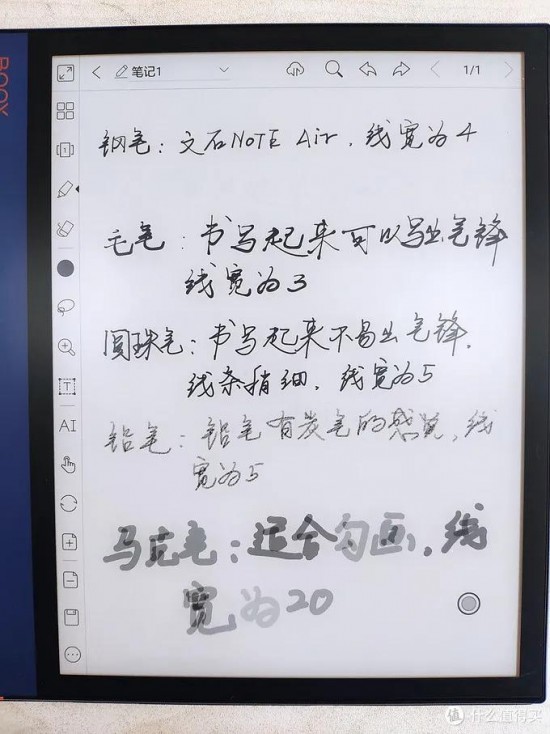 BOOX
笔记1
1/1
钢笔：文石NOTE Air，线宽为4
毛笔：书写起来可以写出笔锋
线宽为3
圆珠笔：书写起来不易出笔锋，
线条稍细，线宽为5
铅笔：铅笔有炭笔的感觉，线
宽为5
马克笔：适合勾画，线
宽为20
T
AI
值 什么值得买